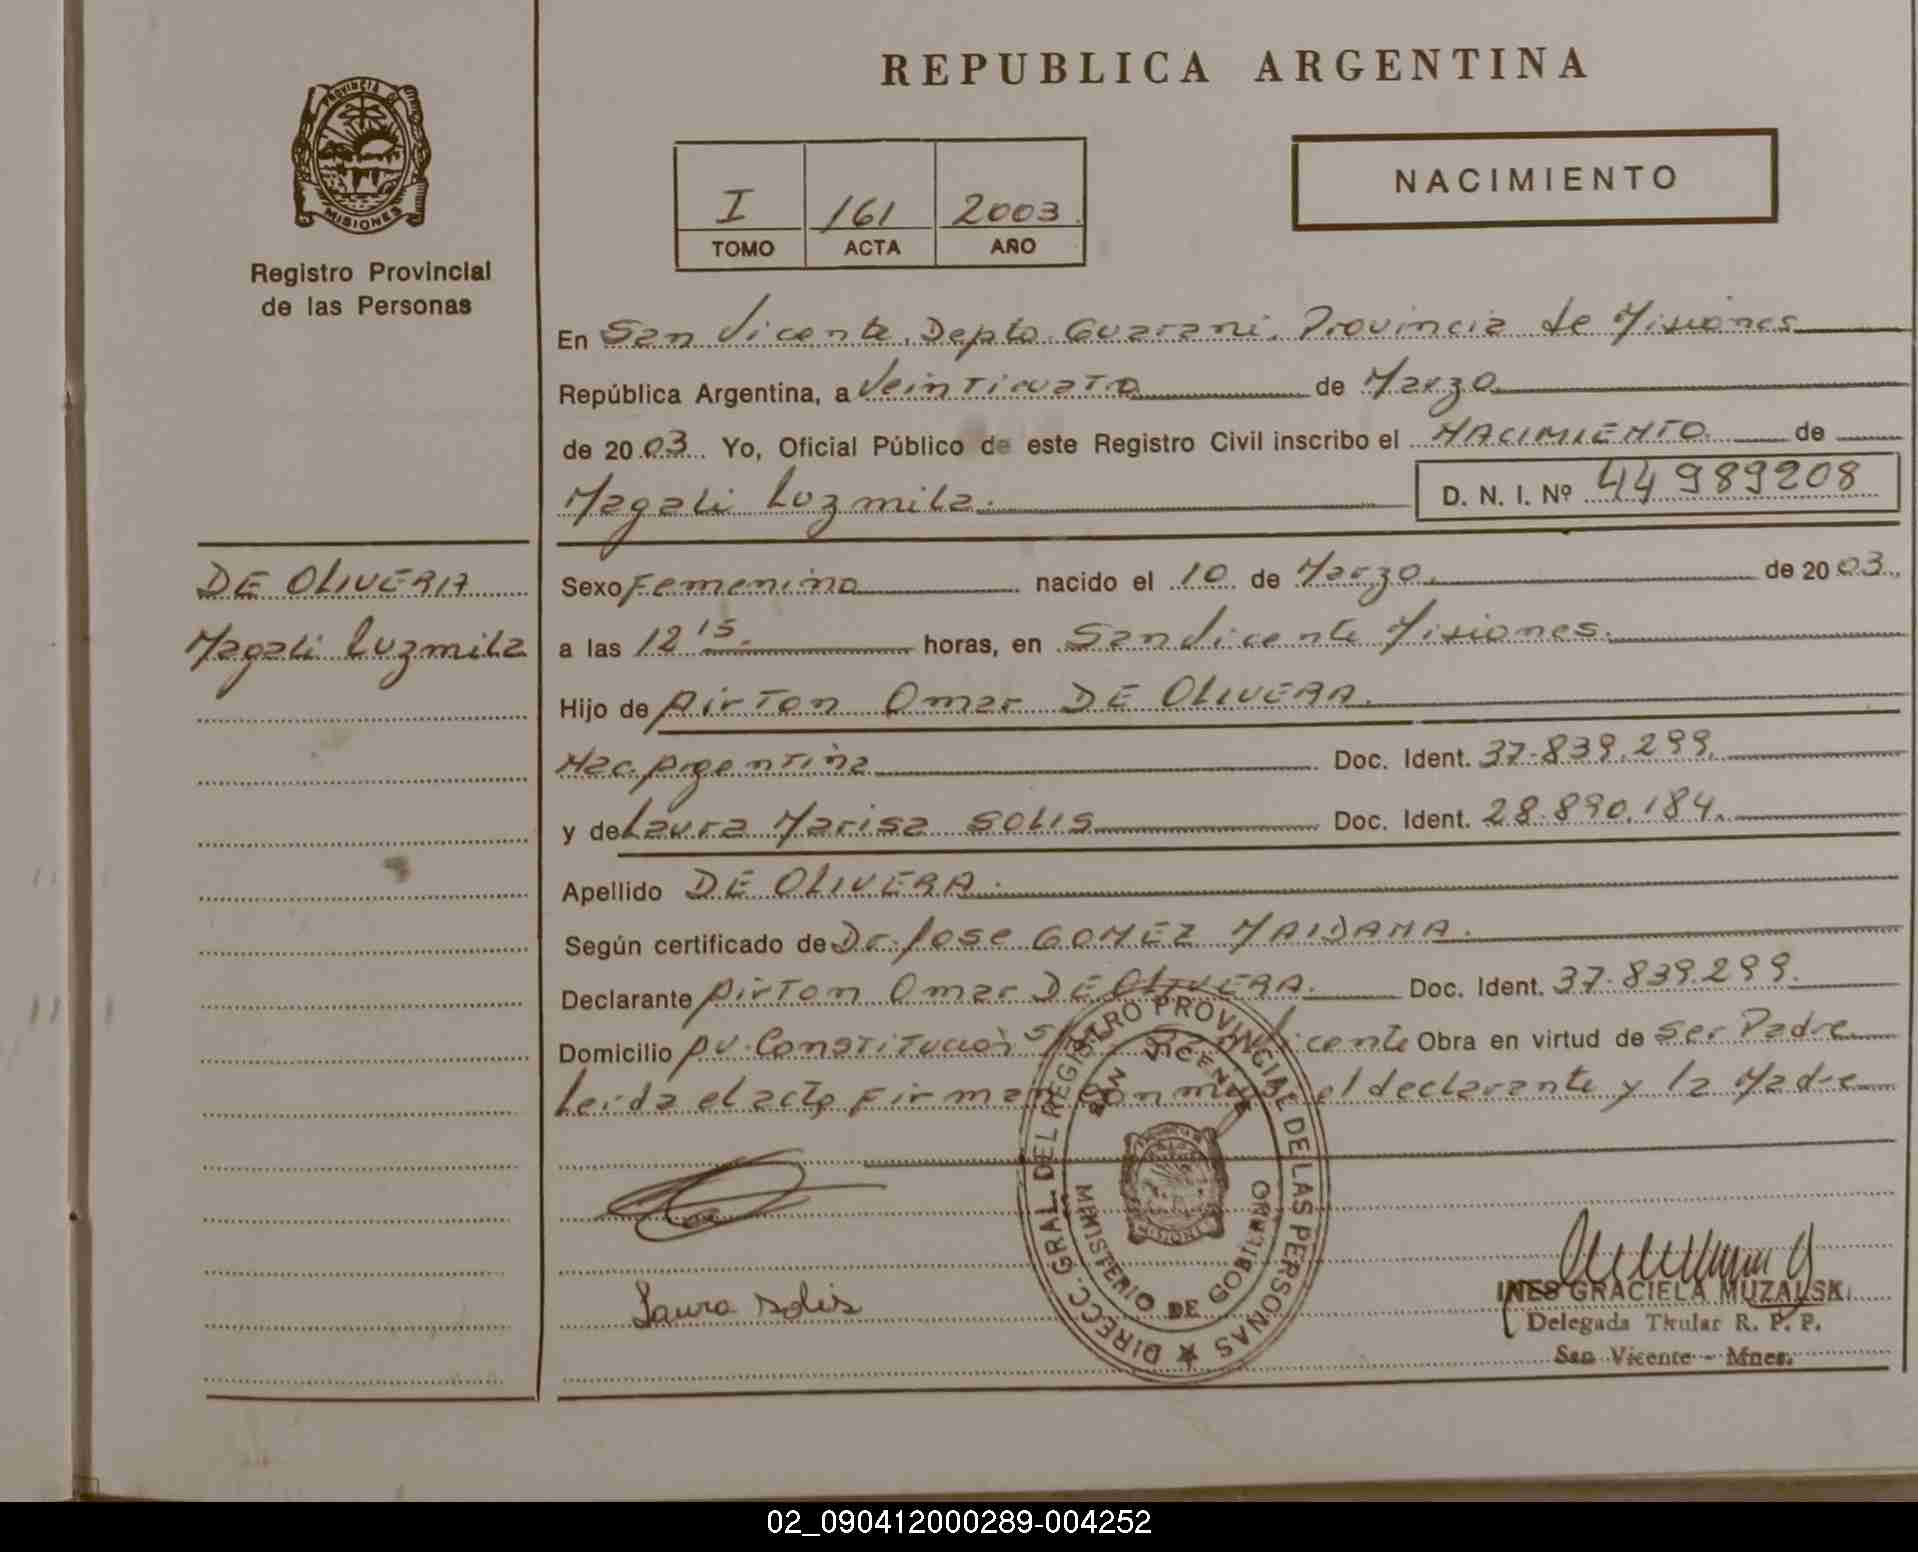 REPUBLICA ARGENTINA
PROVINCIA DE
MISIONES
Registro Provincial
de las Personas
I 161 2003
TOMO ACTA AÑO
NACIMIENTO
En San Vicente, Depto. Guarani, Provincia de Misiones
República Argentina, a Veinticuatro de Marzo
de 2003. Yo, Oficial Público de este Registro Civil inscribo el NACIMIENTO de
Magali Luzmila. D. N. I. Nº 44 989208
DE OLIVERA
Magali Luzmila
Sexo Femenino nacido el 10 de Marzo de 2003.
a las 12 15 horas, en San Vicente Misiones.
Hijo de Airton Omar DE OLIVERA.
Nac. Argentina Doc. Ident. 37.839.299.
y de Laura Marisa SOLIS Doc. Ident. 28.890.184.
Apellido DE OLIVERA.
Según certificado de Dr. Jose GOMEZ MAIDANA.
Declarante Airton Omar DE OLIVERA. Doc. Ident. 37.839.299.
Domicilio Av. Constitución S/N San Vicente Obra en virtud de ser Padre
Leida el acta firman conmigo el declarante y la Madre
DIRECC. GRAL. DEL REGISTRO PROVINCIAL DE LAS PERSONAS
SAN VICENTE
MISIONES
MINISTERIO DE GOBIERNO
Laura Solis
INES GRACIELA MUZALSKI
Delegada Titular R. P. P.
San Vicente - Mnes.
02_090412000289-004252